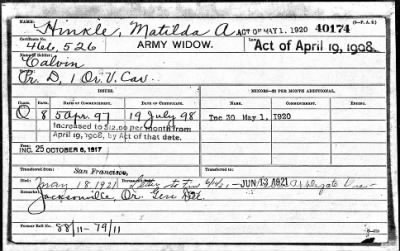 (3-P. A. B)
NAME: Hinkle, Matilda A. ACT OF MAY 1, 1920 40174
Certificate No. 466,526 ARMY WIDOW. Act of April 19, 1908.
Calvin
Pr. D, 1 Or. V. Cav.
ISSUES. MINORS—$2 PER MONTH ADDITIONAL.
CLASS. RATE. DATE OF COMMENCEMENT. DATE OF CERTIFICATE. NAME. COMMENCEMENT. ENDING.
O 8 5 Apr. 97 19 July 98 Inc 30 May 1, 1920
Increased to $12.00 per month from
April 19, 1908, by Act of that date.
INC. 25 OCTOBER 6, 1917
Transferred from San Francisco,
May 18 1921 Letter to JUN 13 1921
Jacksonville, Or. Gen Del
Former Roll No. 88/11 - 79/11